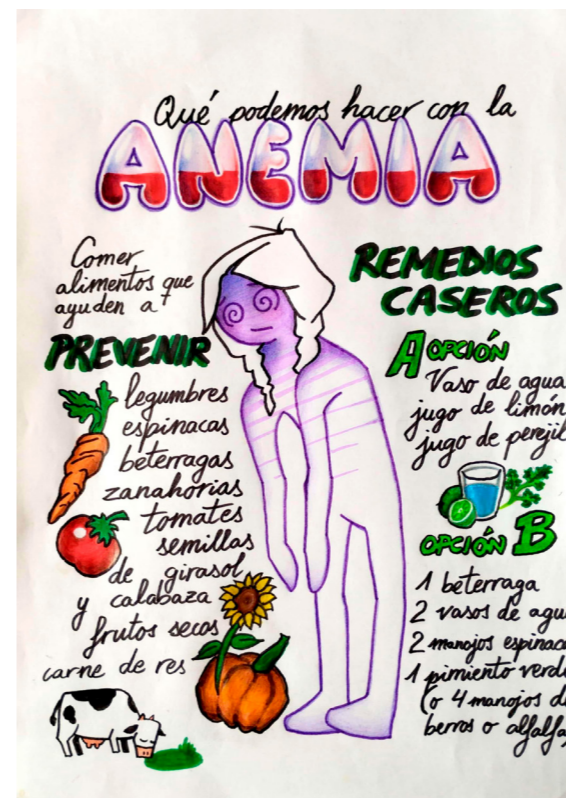 Qué podemos hacer con la
ANEMIA
Comer
alimentos que
ayuden a
PREVENIR
legumbres
espinacas
beterragas
zanahorias
tomates
semillas
de girasol
y calabaza
frutos secos
carne de res
REMEDIOS
CASEROS
A OPCIÓN
Vaso de agua
jugo de limón
jugo de perejil
OPCIÓN B
1 beterraga
2 vasos de agu
2 manojos espinac
1 pimiento verd
(o 4 manojos d
berros o alfalfa